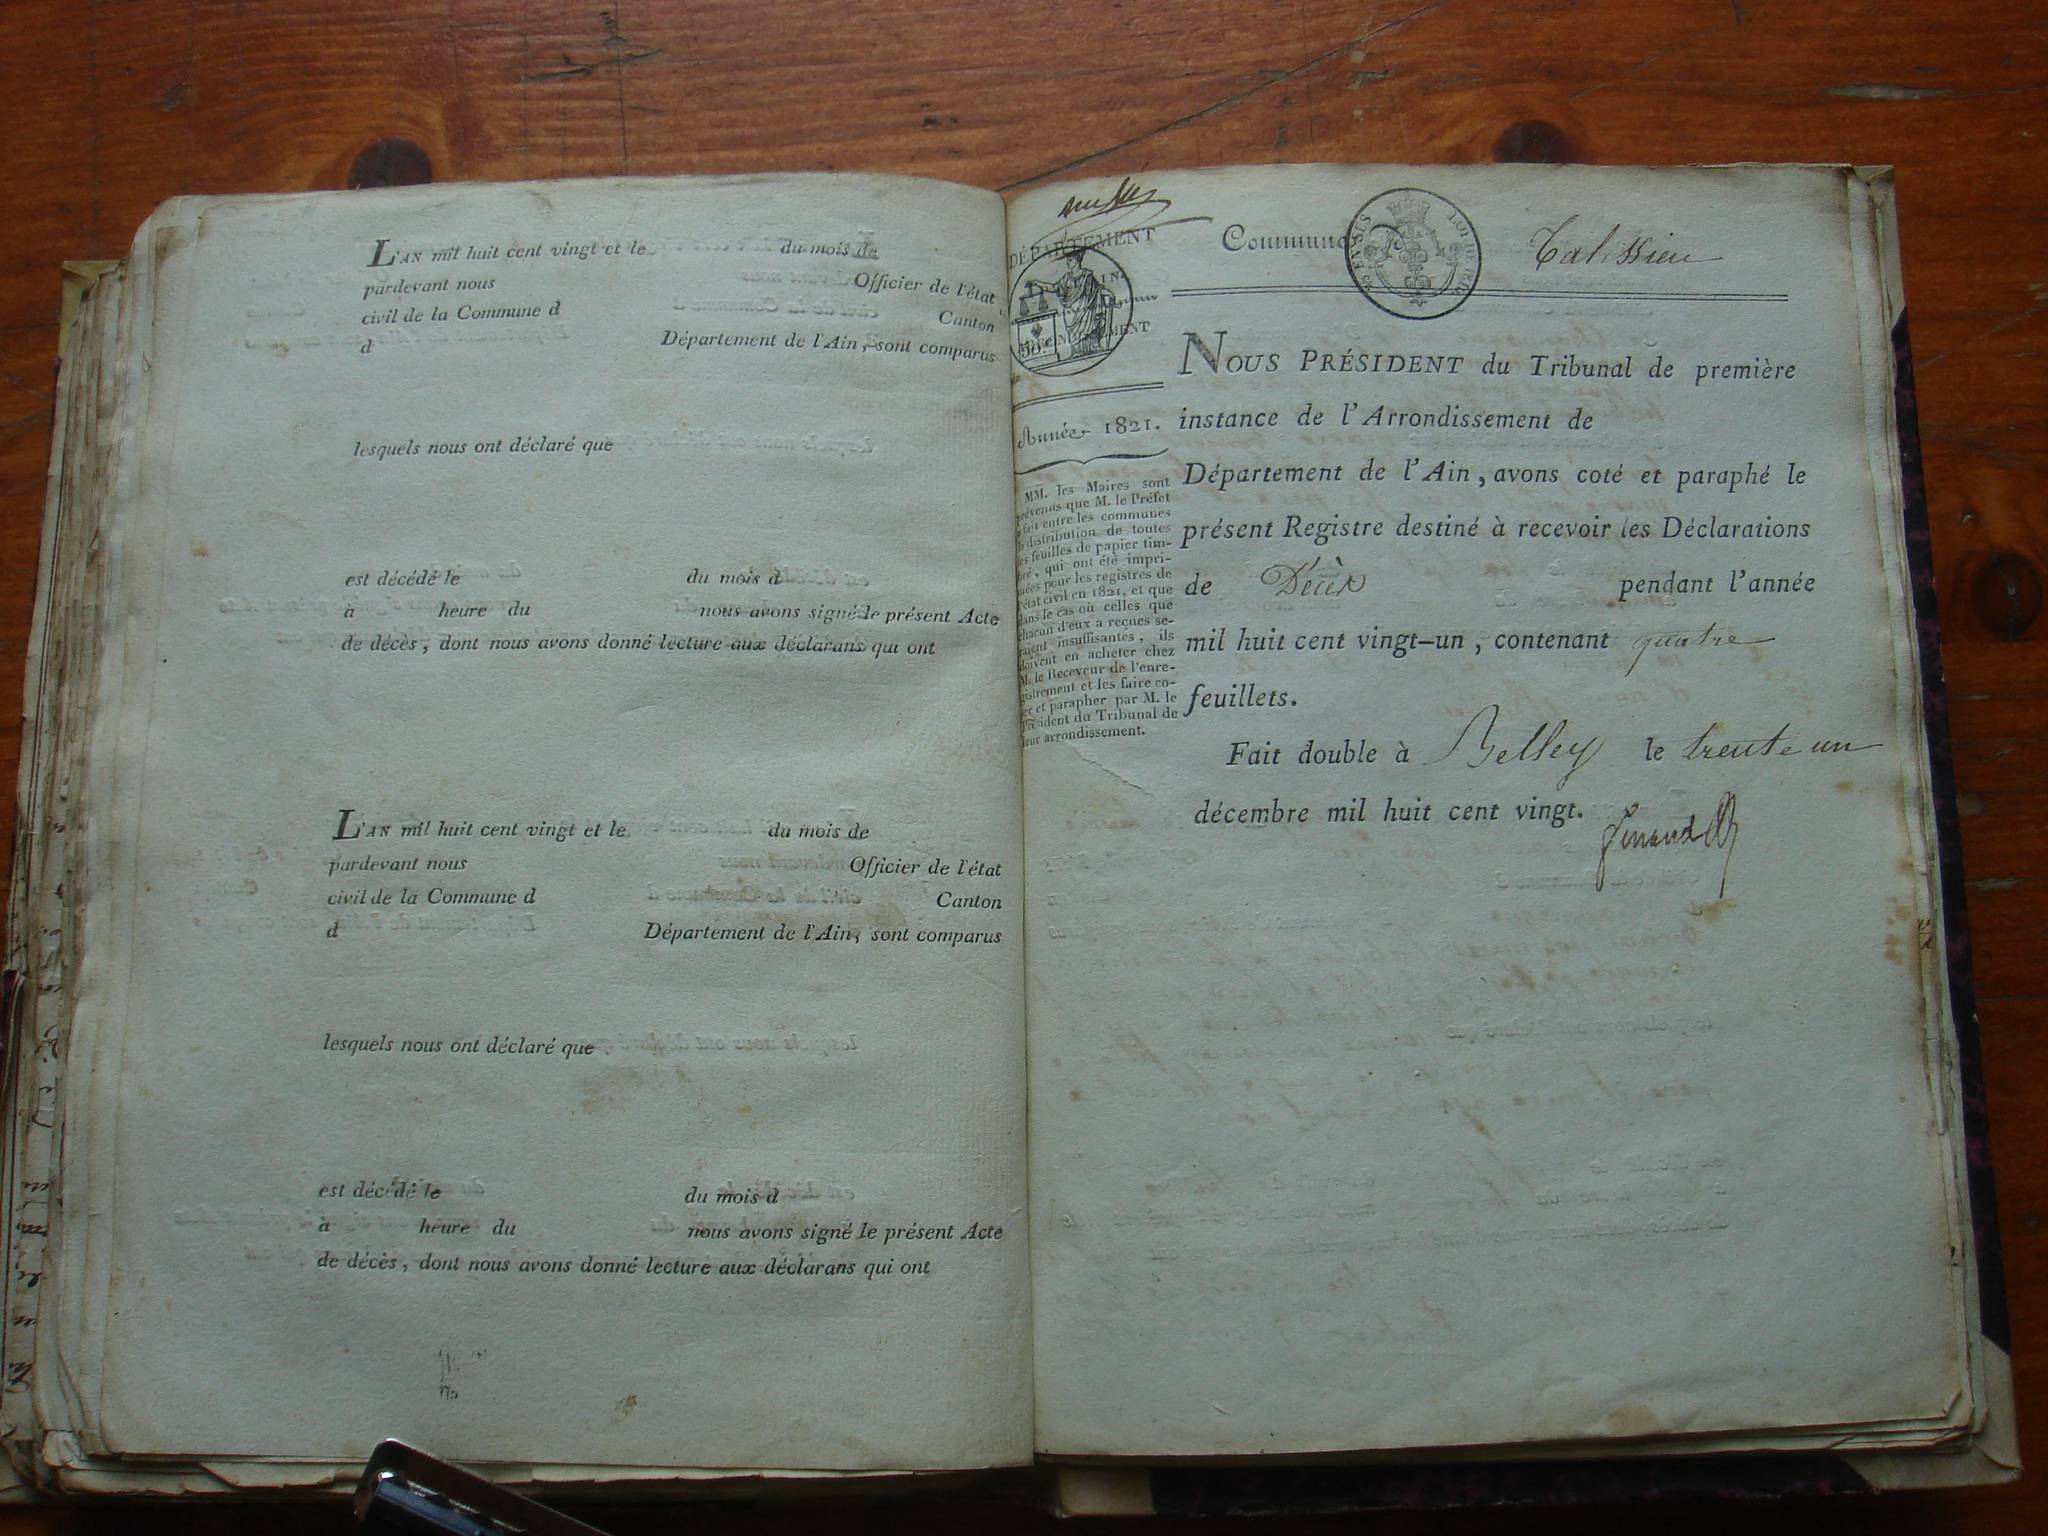 L'AN mil huit cent vingt et le du mois de
pardevant nous Officier de l'état
civil de la Commune d Canton
d Département de l'Ain, sont comparus
lesquels nous ont déclaré que
est décédé le du mois d
à heure du nous avons signé le présent Acte
de décès, dont nous avons donné lecture aux déclarans qui ont
L'AN mil huit cent vingt et le du mois de
pardevant nous Officier de l'état
civil de la Commune d Canton
d Département de l'Ain, sont comparus
lesquels nous ont déclaré que
est décédé le du mois d
à heure du nous avons signé le présent Acte
de décès, dont nous avons donné lecture aux déclarans qui ont
DÉPARTEMENT
50 c.
Année 1821.
MM. les Maires sont
prévenus que M. le Préfet
a fait entre les communes
la distribution de toutes
les feuilles de papier tim-
bré, qui ont été impri-
mées pour les registres de
l'état civil en 1821, et que
dans le cas où celles que
chacun d'eux a reçues se-
raient insuffisantes, ils
doivent en acheter chez
M. le Receveur de l'enre-
gistrement et les faire co-
ter et parapher par M. le
Président du Tribunal de
leur arrondissement.
Commune Talissieu
LOI DE 1816
NOUS PRÉSIDENT du Tribunal de première
instance de l'Arrondissement de
Département de l'Ain, avons coté et paraphé le
présent Registre destiné à recevoir les Déclarations
de Décès pendant l'année
mil huit cent vingt-un, contenant quatre
feuillets.
Fait double à Belley le trente un
décembre mil huit cent vingt.